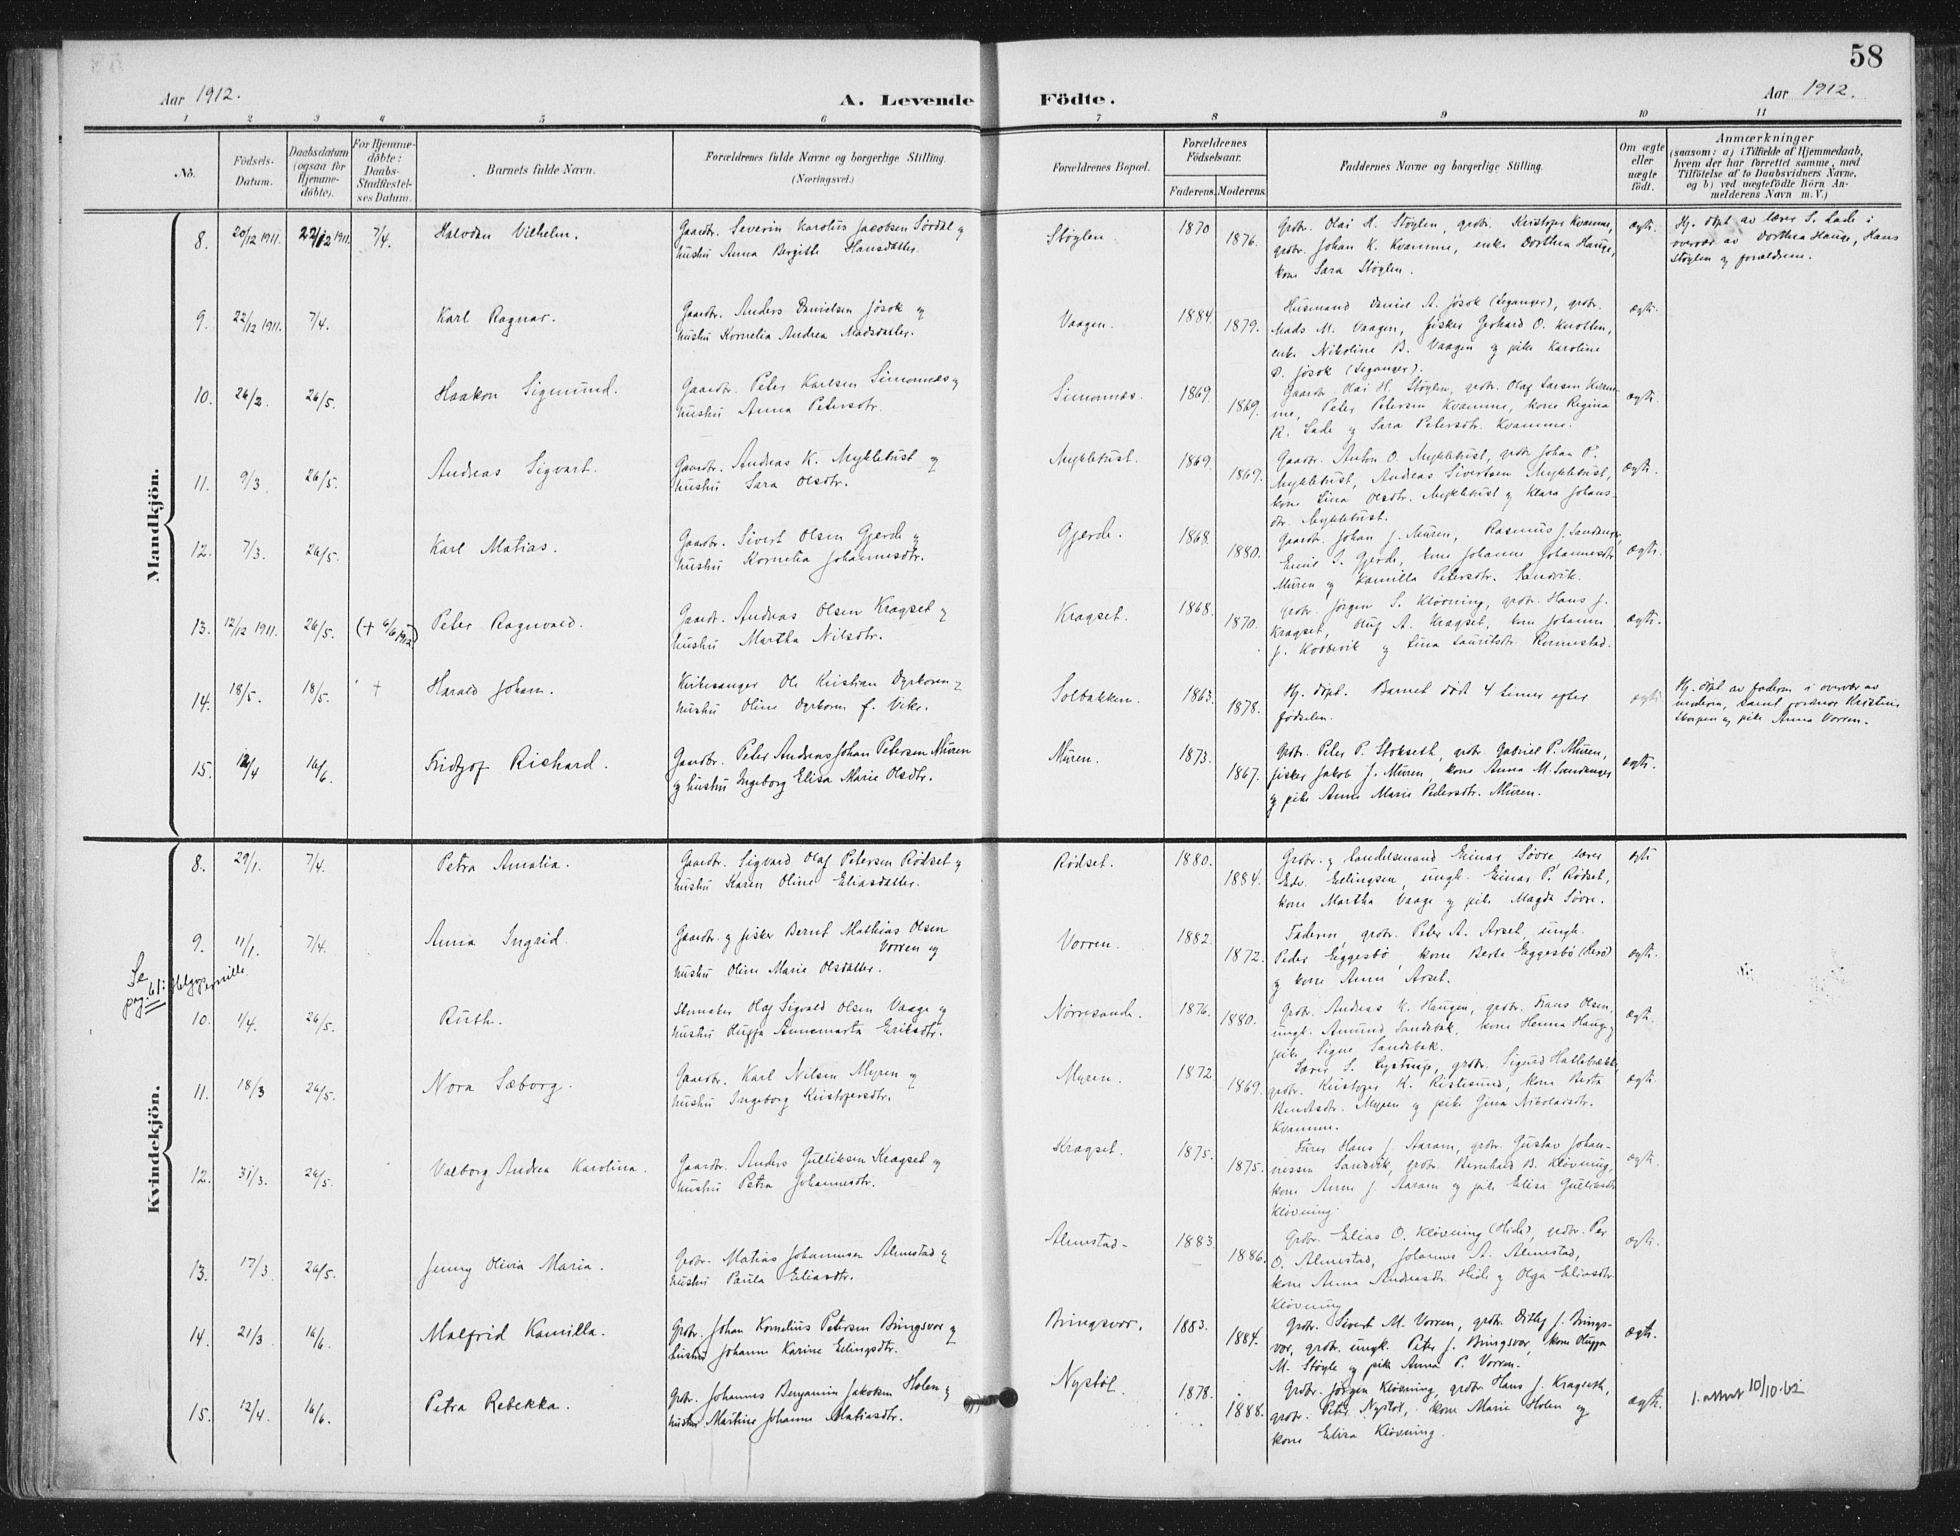 58
Aar 1912.
A. Levende Födte.
Aar 1912.
1 2 3 4 5 6 7 8 9 10 11
No.
Födsels-Datum.
Daabsdatum (ogsaa for Hjemme-döbte).
For Hjemme-döbte: Daabs-Stadfæstel-ses Datum.
Barnets fulde Navn.
Forældrenes fulde Navne og borgerlige Stilling. (Næringsvei.)
Forældrenes Bopæl.
Forældrenes Födselsaar.
Faderens. Moderens.
Faddernes Navne og borgerlige Stilling.
Om ægte eller uægte födt.
Anmærkninger
(saasom: a) i Tilfælde af Hjemmedaab, hvem der har forrettet samme, med Tilföielse af to Daabsvidners Navne, og b) ved uægtefödte Börn An-melderens Navn m. V.)
Mandkjön.
8. 20/12 1911. 22/12 1911. 7/4. Halvdan Vilhelm. Gaardbr. Severin Karolus Jacobsen Sördal og
hustru Anna Bergitte Hansdatter. Støylen. 1870 1876.
Grbr. Olai H. Støylen, grbr. Kristofer Kvamme,
grbr. Johan K. Kvamme, enke Dorthea Hauge,
kone Sara Støylen. ægte.
Hj. døpt av lærer S. Lade i
overvær av Dorthea Hauge, Hans
Støylen og forældrene.
9. 22/12 1911. 7/4. Karl Ragnar. Gaardbr. Anders Danielsen Jøsok og
hustru Kornelia Andrea Madsdatter. Vaagen. 1884. 1879.
Husmand Daniel A. Jøsok (Leganger), grbr.
Mads M. Vaagen, fisker Gerhard O. Knotten,
enke Nikoline B. Vaagen og pike Karoline
D. Jøsok (Leganger). ægte.
10. 26/2. 26/5. Haakon Sigmund. Gaardbr. Peter Karlsen Simonnæs og
hustru Anna Petersdtr. Simonnæs. 1869. 1869.
Gaardbr. Olai H. Støylen, grbr. Olaf Larsen Kvam-
me, Peter Petersen Kvamme, kone Regina
R. Lade og Sara Petersdtr. Kvamme. ægte.
11. 9/3. 26/5. Andreas Sigvart. Gaardbr. Andreas K. Myklebust og
hustru Sara Olsdtr. Myklebust. 1869. 1869.
Gaardbr. Anton O. Myklebust, grbr. Johan P.
Myklebust, Andreas Sivertsen Myklebust,
kone Lina Olsdtr. Myklebust og Klara Johans-
dtr. Myklebust. ægte.
12. 7/3. 26/5. Karl Matias. Gaardbr. Sivert Olsen Gjerde og
hustru Kornelia Johannesdtr. Gjerde. 1868. 1880.
Gaardbr. Johan J. Muren, Rasmus J. Sandanger,
Emil S. Gjerde, kone Johanne Johannesdtr.
Muren og Kamilla Petersdtr. Sandvik. ægte.
13. 12/12 1911. 26/5. († 6/6 1912) Peter Ragnvald. Gaardbr. Andreas Olsen Kragset og
hustru Martha Nilsdtr. Kragset. 1868. 1870.
Grbr. Jørgen S. Kløvning, grbr. Hans J.
Kragset, Oluf A. Kragset, kone Johanne
J. Kobbevik og Lina Lauritsdtr. Rønnestad. ægte.
14. 18/5. 18/5. † Harald Johan. Kirkesanger Ole Kristian Dyrkoren og
hustru Oline Dyrkoren f. Vike. Solbakken. 1863. 1878.
Hj. døpt. Barnet død 4 timer efter
fødselen. ægte
Hj. døpt av faderen i overvær av
moderen, samt jordmor Kristine
Skorpen og pike Anna Vorren.
15. 12/4 16/6. Fridtjof Richard. Gaardbr. Peter Andreas Johan Petersen Muren
og hustru Ingeborg Elisa Marie Olsdtr. Muren. 1873. 1867.
Grbr. Peter P. Stokseth, grbr. Gabriel P. Muren,
fisker Jakob J. Muren, kone Anna M. Sandanger
og pike Anne Marie Pedersdtr. Muren. ægte.
Kvindekjön.
8. 29/1. 7/4. Petra Amalia. Gaardbr. Sigvard Olaf Petersen Rødset og
hustru Karen Oline Eliasdatter. Rødset. 1880. 1884.
Grbr. og Handelsmand Einar Søvre, lærer
Edv. Erlingsen, ungk. Einar P. Rødset,
kone Martha Vaage og pike Magda Søvre. ægte
9. 11/1. 7/4. Anna Ingrid. Gaardbr. og fisker Bernt Mathias Olsen
Vorren og
hustru Oline Marie Olsdatter. Vorren. 1882. 1872.
Faderen, grbr. Peter A. Arset, ungk.
Peder Eggesbø, kone Berte Eggesbø (Herø)
og kone Anne Arset. ægte.
Se
pag. 61: Helga Pernille
10. 1/4. 26/5. Ruth. Skomaker Olaf Sigvald Olsen Vaage og
hustru Oluffa Annemarta Eriksdtr. Nørresande. 1876. 1880.
Grbr. Andreas K. Haugen, grbr. Hans Olsen,
ungk. Amund Sandsbak, kone Henna Hauge og
pike Signe Sandsbak. ægte.
11. 18/3 26/5. Nora Sæborg. Gaardbr. Karl Nilsen Myren og
hustru Ingeborg Kristofersdtr. Myren. 1872 1869.
Lærer S. Systrup, grbr. Sigurd Hallebrække,
grbr. Kristofer K. Ristesund, kone Berta
Berntsdtr. Myren og pike Gina Nikolaisdtr.
Kvamme. ægte.
12. 31/3. 26/5. Valborg Andrea Karolina. Gaardbr. Anders Gulliksen Kragset og
hustru Petra Johannesdtr. Kragset. 1875. 1875.
Fører Hans J. Aaram, grbr. Gustav Johan-
nessen Sandvik, grbr. Bernhard B. Kløvning,
kone Anne J. Aaram og pike Elisa Gulliksdtr
Kløvning. ægte.
13. 17/3. 26/5. Jenny Olivia Maria. Grbr. Matias Johannesen Almestad og
hustru Paula Eliasdtr. Almestad. 1883. 1886.
Grbr. Elias O. Kløvning (Hide), grbr. Per
O. Almestad, Johannes A. Almestad,
kone Anna Andreasdtr. Hide og Olga Eliasdtr.
Kløvning ægte.
14. 21/3 16/6. Malfrid Kamilla. Grbr. Johan Kornelius Petersen Bringsvor og
hustru Johanne Karine Erlingsdtr. Bringsvor. 1883. 1884.
Grbr. Sivert M. Vorren, grbr. Ditlef J. Brings-
vor, grbr. ungk. Peter J. Bringsvor, kone Oluffa
M. Støyle og pike Anna P. Vorren. ægte.
15. 12/4. 16/6. Petra Rebekka. Grbr. Johannes Benjamin Jakobsen Holen og
hustru Martine Johanne Matiasdtr. Nystøl. 1878. 1888.
Grbr. Jørgen Kløvning, grbr. Hans J. Kragseth,
grbr. Peter Nystøl, kone Marie Holen og
kone Elisa Kløvning. ægte.
1. attest 10/10-62